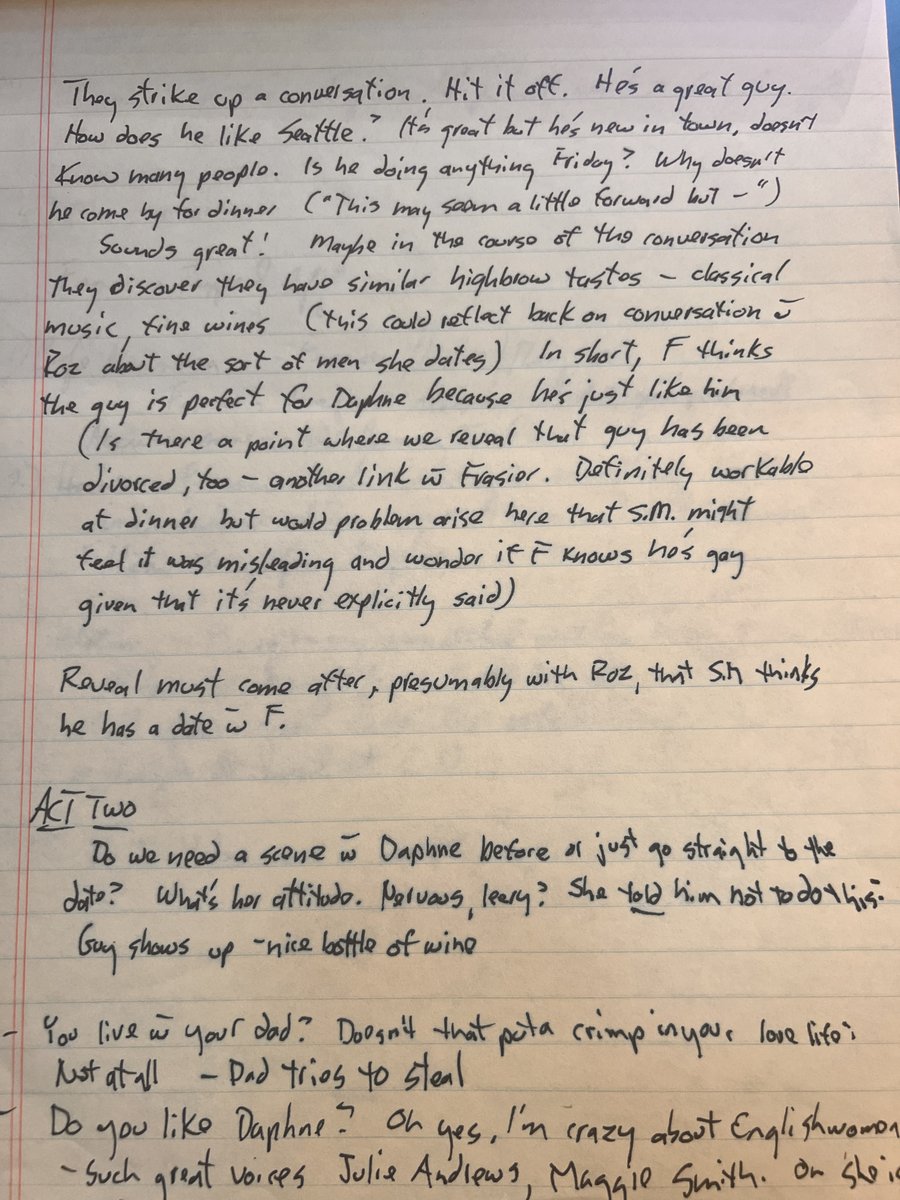 They strike up a conversation. Hit it off. He's a great guy.
How does he like Seattle? It's great but he's new in town, doesn't
know many people. Is he doing anything Friday? Why doesn't
he come by for dinner ("This may seem a little forward but – ")
Sounds great! Maybe in the course of the conversation
they discover they have similar highbrow tastes – classical
music, fine wines (this could reflect back on conversation w̄
Roz about the sort of men she dates) In short, F thinks
the guy is perfect for Daphne because he's just like him
(Is there a point where we reveal that guy has been
divorced, too – another link w̄ Frasier. Definitely workable
at dinner but would problem arise here that S.M. might
feel it was misleading and wonder if F knows he's gay
given that it's never explicitly said)
Reveal must come after, presumably with Roz, that S.M thinks
he has a date w̄ F.
ACT TWO
Do we need a scene w̄ Daphne before or just go straight to the
date? What's her attitude. Nervous, leery? She told him not to do this.
Guy shows up – nice bottle of wine
- You live w̄ your dad? Doesn't that put a crimp in your love life?
Not at all – Dad tries to steal
- Do you like Daphne? Oh yes, I'm crazy about Englishwomen
- Such great voices Julie Andrews, Maggie Smith. Oh she's